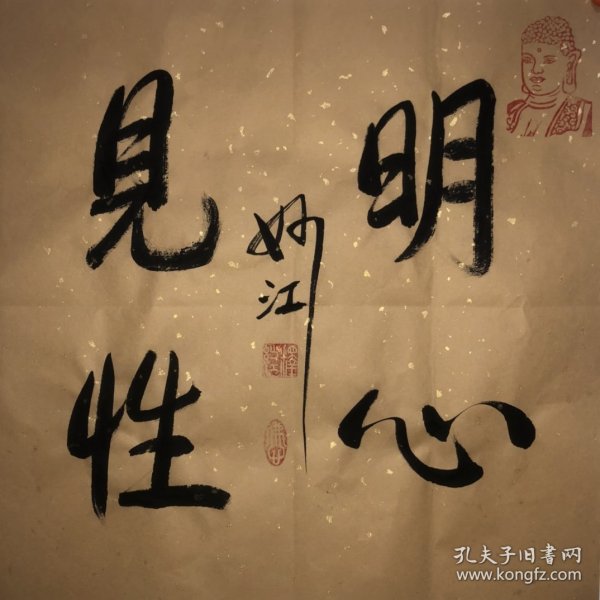 明心
見性
妙江
孔夫子旧書网
www.kongfz.com